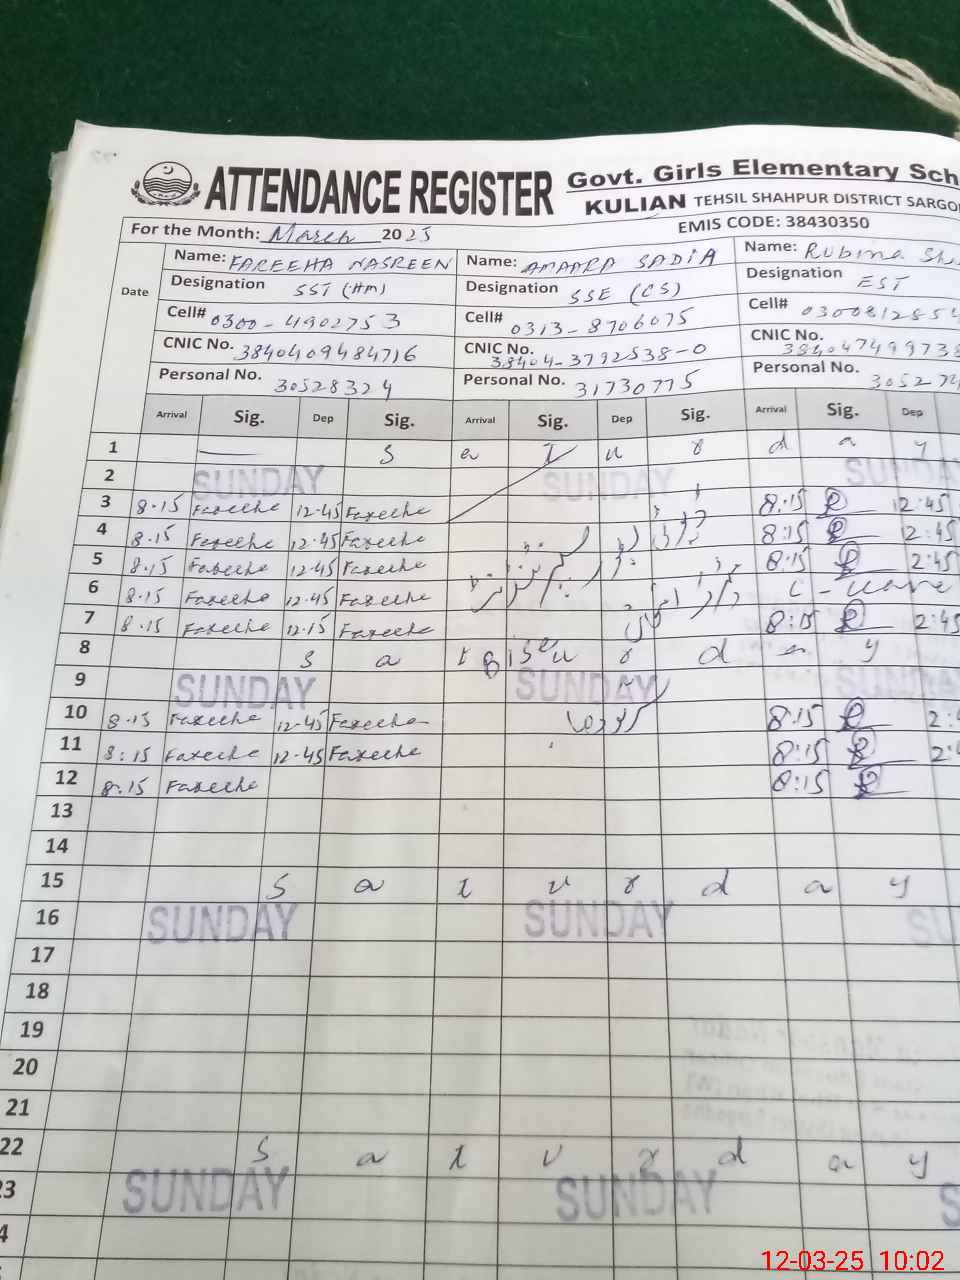 ATTENDANCE REGISTER Govt. Girls Elementary Sch
KULIAN TEHSIL SHAHPUR DISTRICT SARGO
For the Month: March 2025 EMIS CODE: 38430350
Date Name: FAREEHA NASREEN Name: AMAARA SADIA Name: Rubina
Designation SST (HM) Designation SSE (CS) Designation EST
Cell# 0300-4902753 Cell# 0313-8706075 Cell# 030081285
CNIC No. 3840409484716 CNIC No. 38404-3792538-0 CNIC No. 384047499738
Personal No. 30528324 Personal No. 31730775 Personal No. 305274
Arrival Sig. Dep Sig. Arrival Sig. Dep Sig. Arrival Sig. Dep
1 S a t u r d a y
2 SUNDAY SUNDAY SUND
3 8.15 Fareeha 12.45 Fareeha 8:15 12:45
4 8.15 Fareeha 12.45 Fareeha 8:15 2:45
5 8.15 Fareeha 12.45 Fareeha 8:15 2:45
6 8.15 Fareeha 12.45 Fareeha C-Leave
7 8.15 Fareeha 12.15 Fareeha 8:15 2:45
8 S a t u r d a y
9 SUNDAY SUNDAY SUNDA
10 8.15 Fareeha 12.45 Fareeha 8:15 2:
11 8:15 Fareeha 12.45 Fareeha 8:15 2:
12 8.15 Fareeha 8:15
13
14
15 S a t u r d a y
16 SUNDAY SUNDAY SU
17
18
19
20
21
22 S a t u r d a y
23 SUNDAY SUNDAY S
4
12-03-25 10:02